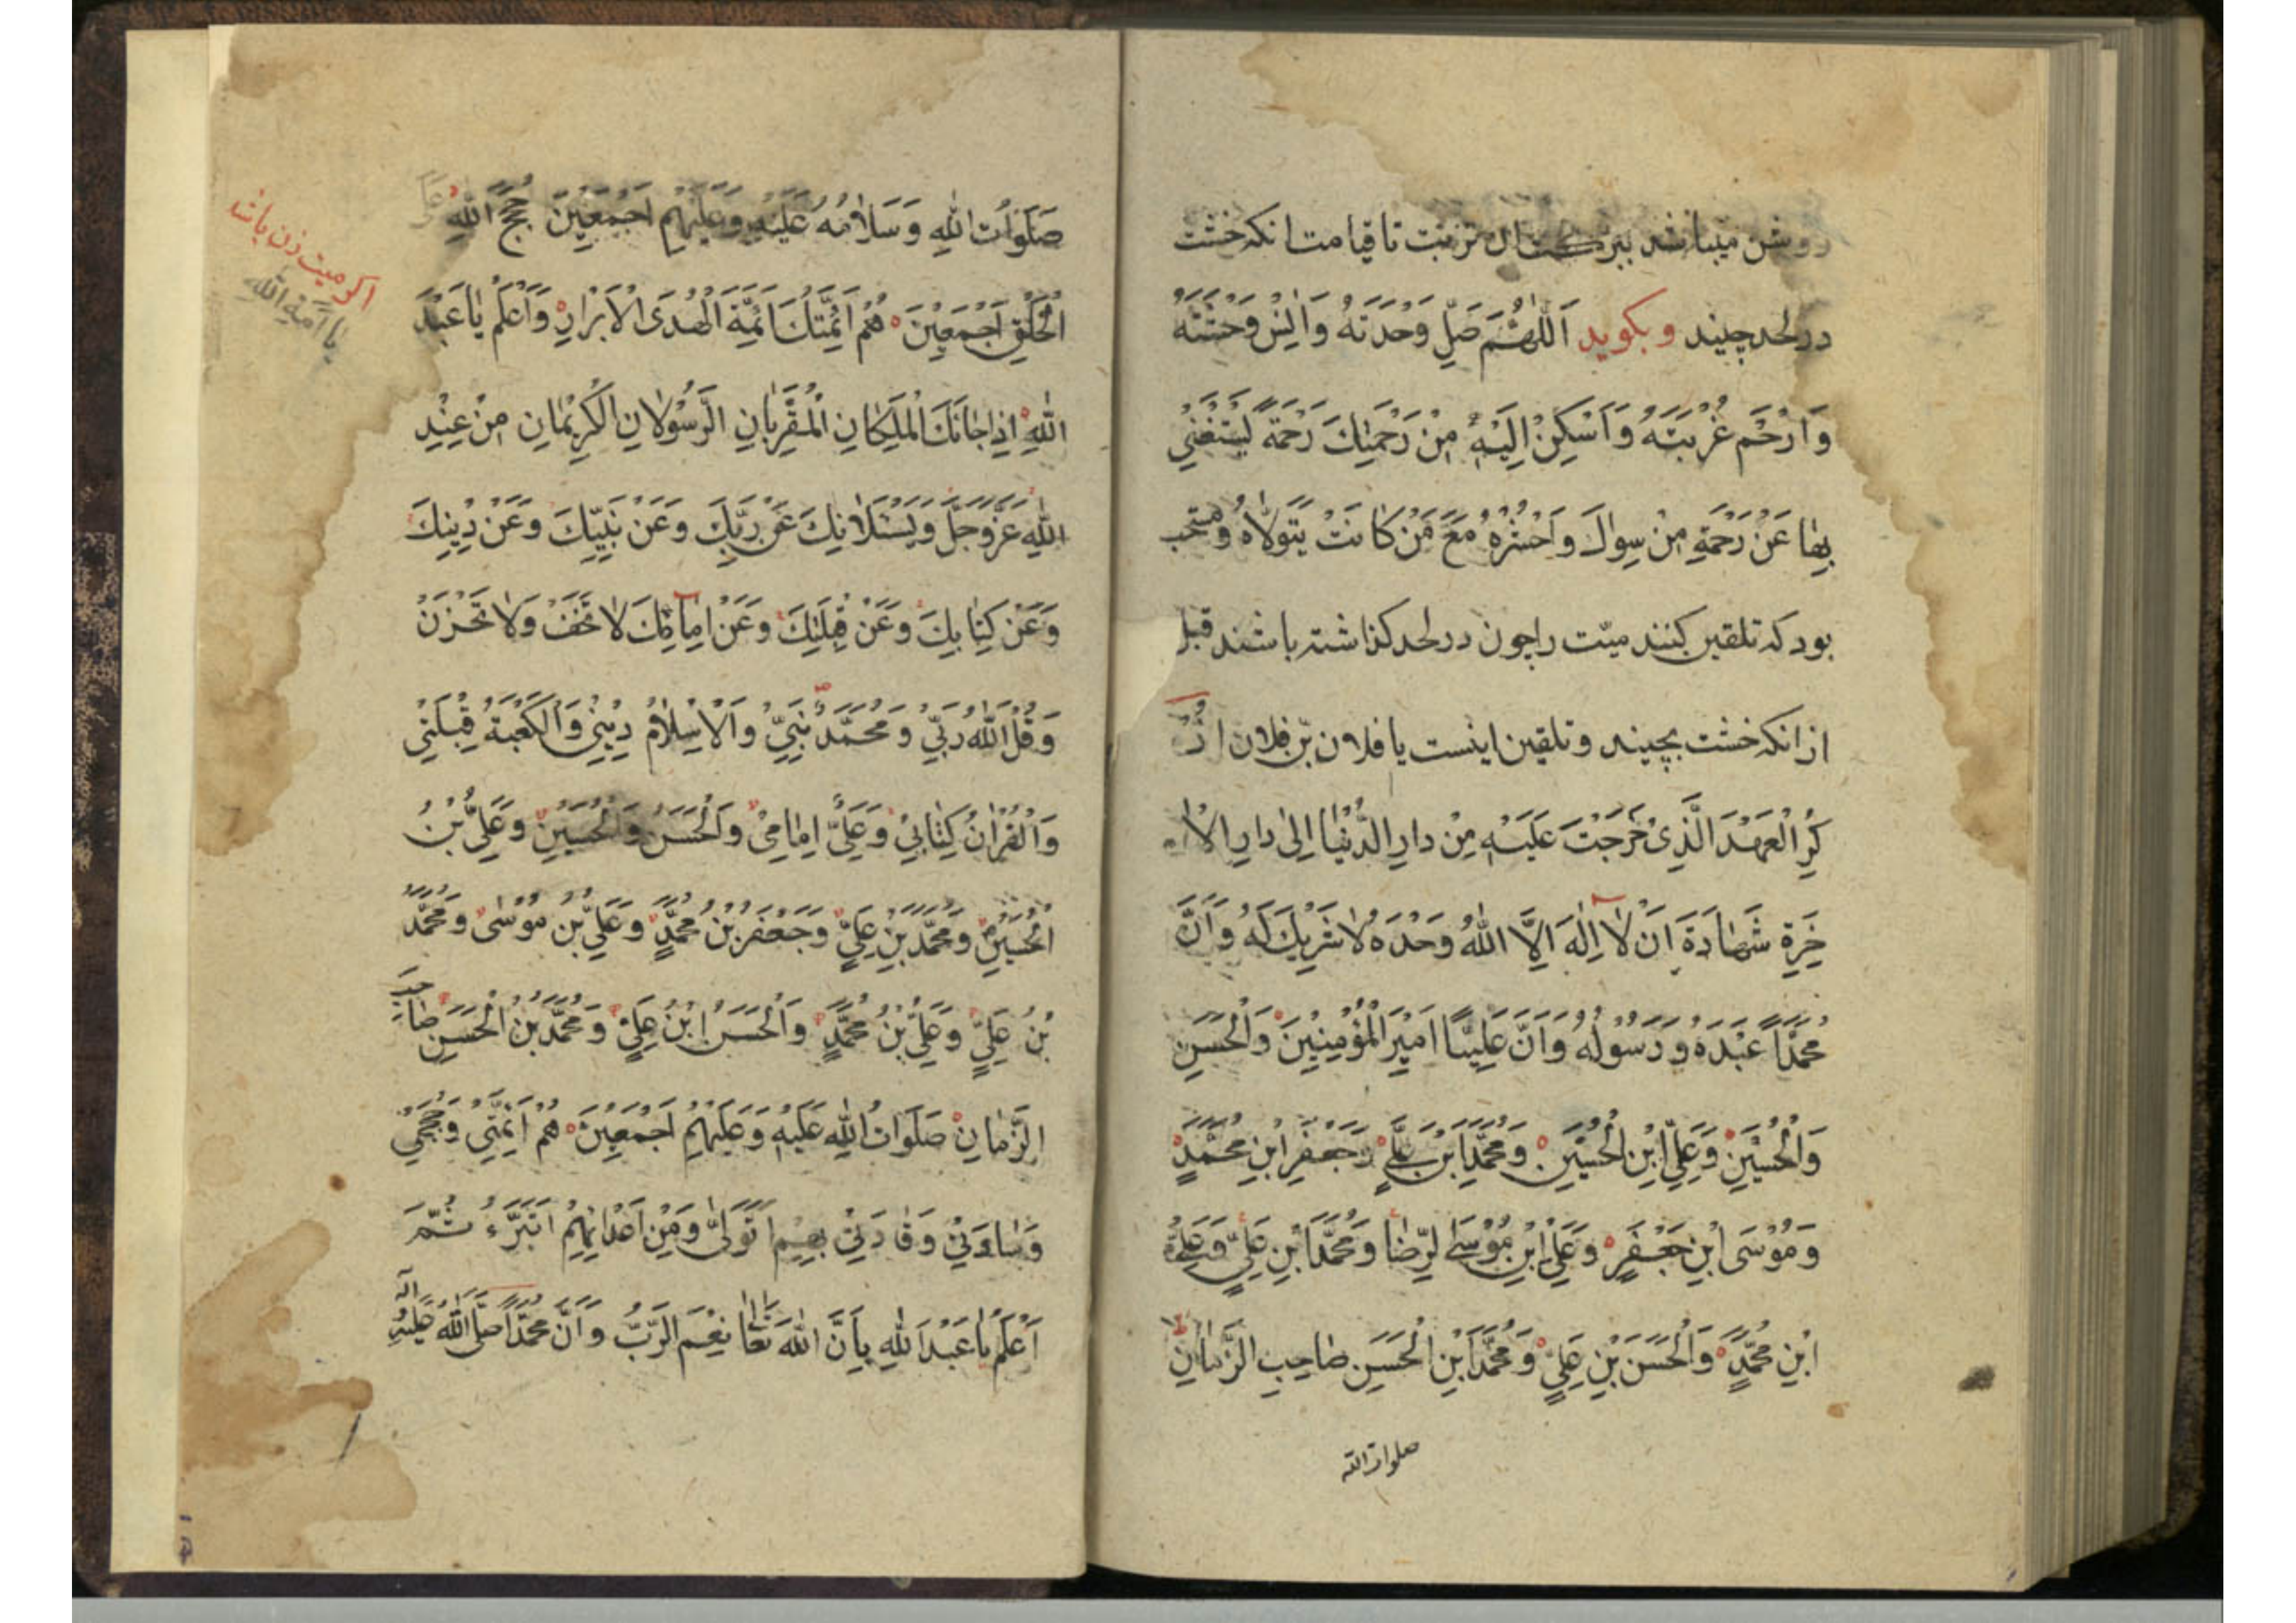 روشن میباشد ببرکت ان تربت تا قیامت انکه خشت
در لحد چیند وبکوید اَللّٰهُمَّ صَلِّ وَحْدَتَهُ وَاٰنِسْ وَحْشَتَهُ
وَارْحَمْ غُرْبَتَهُ وَاَسْكِنْ اِلَيْهِ مِنْ رَحْمَتِكَ رَحْمَةً يَسْتَغْنِيْ
بِهٰا عَنْ رَحْمَةِ مِنْ سِوٰاكَ وَاحْشُرْهُ مَعَ مَنْ كٰانَتْ يَتَوَلّٰاهُ ومستحب
بود که تلقین کنند میّت را چون در لحد کذاشته باشند قبل
از انکه خشت بچیند و تلقین اینست یا فلان بن فلان اذْ
كُرِ الْعَهْدَ الَّذِيْ خَرَجْتَ عَلَيْهِ مِنْ دارِ الدُّنْيٰا اِلىٰ دارِ الْاٰ
خِرَةِ شَهٰادَةَ اَنْ لٰا اِلٰهَ اِلَّا اللّٰهُ وَحْدَهُ لٰا شَرِيْكَ لَهُ وَاَنَّ
مُحَمَّدًا عَبْدَهُ وَرَسُوْلُهُ وَاَنَّ عَلِيًّا اَمِيْرَ الْمُؤْمِنِيْنَ وَالْحَسَنِ
وَالْحُسَيْنِ وَعَلِيِّ ابْنِ الْحُسَيْنِ وَمُحَمَّدِ ابْنِ عَلِيٍّ وَجَعْفَرِ ابْنِ مُحَمَّدٍ
وَمُوْسَى ابْنِ جَعْفَرٍ وَعَلِيِّ ابْنِ مُوْسَى الرِّضٰا وَمُحَمَّدِ ابْنِ عَلِيٍّ وَعَلِيِّ
ابْنِ مُحَمَّدٍ وَالْحَسَنَ بْنِ عَلِيٍّ وَمُحَمَّدَ ابْنِ الْحَسَنِ صٰاحِبِ الزَّمٰانِ
صلوات الله
صَلَوٰاتُ اللّٰهِ وَسَلٰامُهُ عَلَيْهِ وَعَلَيْهِمْ اَجْمَعِيْنَ حُجَجُ اللّٰهِ عَلَى
الْخَلْقِ اَجْمَعِيْنَ هُمْ اَئِمَّتُكَ اَئِمَّةَ الْهُدَى الْاَبْرٰارِ وَاعْلَمْ يٰا عَبْدَ
اللّٰهِ اِذٰا جٰائَكَ الْمَلَكٰانِ الْمُقَرَّبٰانِ الرَّسُوْلٰانِ الْكَرِيْمٰانِ مِنْ عِنْدِ
اللّٰهِ عَزَّوَجَلَّ وَيَسْئَلٰانِكَ عَنْ رَبِّكَ وَعَنْ نَبِيِّكَ وَعَنْ دِيْنِكَ
وَعَنْ كِتٰابِكَ وَعَنْ قِبْلَتِكَ وَعَنْ اِمٰامِكَ لٰا تَخَفْ وَلٰا تَحْزَنْ
وَقُلْ اللّٰهُ رَبِّيْ وَمُحَمَّدٌ نَبِيِّيْ وَالْاِسْلٰامُ دِيْنِيْ وَالْكَعْبَةُ قِبْلَتِيْ
وَالْقُرْاٰنُ كِتٰابِيْ وَعَلِيٌّ اِمٰامِيْ وَالْحَسَنُ وَالْحُسَيْنِ وَعَلِيُّ بْنُ
الْحُسَيْنِ وَمُحَمَّدُ بْنِ عَلِيٍّ وَجَعْفَرُ بْنُ مُحَمَّدٍ وَعَلِيُّ بْنُ مُوْسٰى وَمُحَمَّدُ
بْنُ عَلِيٍّ وَعَلِيُّ بْنُ مُحَمَّدٍ وَالْحَسَنُ ابْنُ عَلِيٍّ وَمُحَمَّدُ بْنُ الْحَسَنِ صٰاحِبِ
الزَّمٰانِ صَلَوَاتُ اللّٰهِ عَلَيْهِ وَعَلَيْهِمْ اَجْمَعِيْنَ هُمْ اَئِمَّتِيْ وَحُجَجِيْ
وَسٰادَتِيْ وَقٰادَتِيْ بِهِمْ اَتَوَلّٰى وَمِنْ اَعْدٰائِهِمْ اَتَبَرَّءُ ثُمَّ
اَعْلَمْ يٰا عَبْدَ اللّٰهِ بِاَنَّ اللّٰهَ تَعٰالىٰ نِعْمَ الرَّبُّ وَاَنَّ مُحَمَّدًا صَلَّى اللّٰهُ عَلَيْهِ وَاٰلِهِ
اکر میت زن باشد
یا اَمَةَ اللّٰهِ